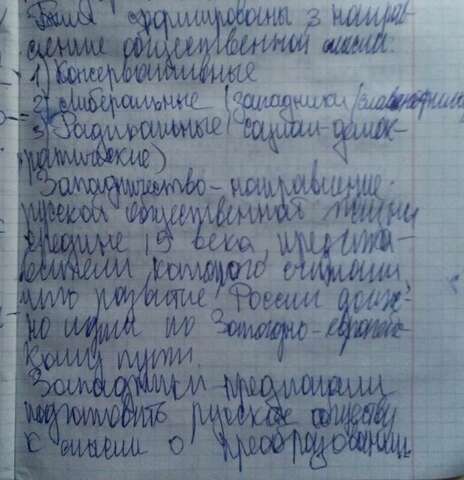 Были сформированы 3 направ-
ление общественной мысли:
1) Консервативные
2) либеральные (западники/славянофилы)
3) Радикальные (социал-демок-
ратические)
Западничество - направление
русской общественной жизни
середине 19 века, предста-
вители которого считали
что развитие России долж-
но идти по Западно-европейс-
кому пути.
Западники предлагали
подготовить русское обществу
к мысли о преобразовании